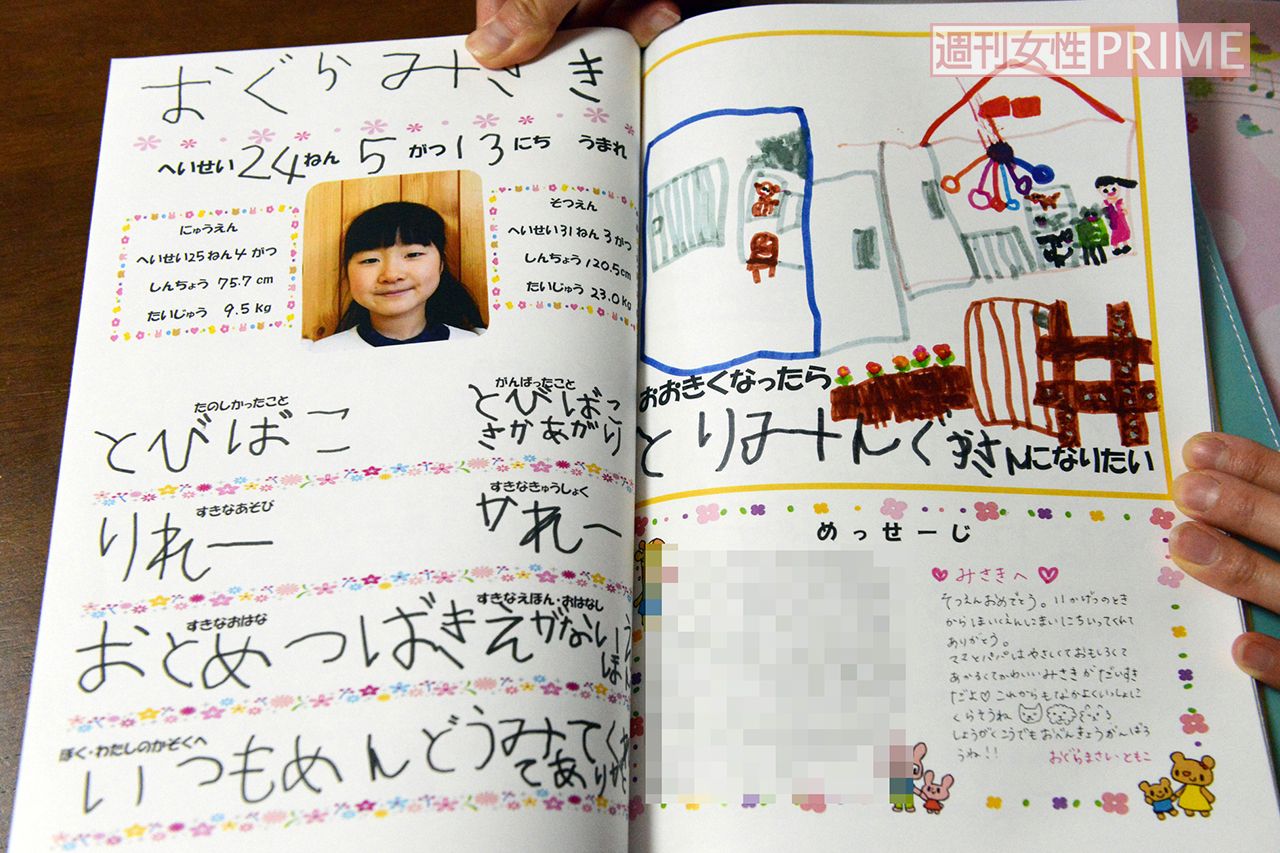 週刊女性PRIME
おぐらみさき
へいせい24ねん5がつ13にち うまれ
にゅうえん
へいせい25ねん4がつ
しんちょう 75.7cm
たいじゅう 9.5kg
そつえん
へいせい31ねん3がつ
しんちょう 120.5cm
たいじゅう 23.0kg
たのしかったこと
とびばこ
がんばったこと
とびばこ
さかあがり
すきなあそび
りれー
すきなきゅうしょく
かれー
すきなおはな
おとめつばき
すきなえほん・おはなし
えがない
えほん
ぼく・わたしのかぞくへ
いつもめんどうみてくれ
てありがと
おおきくなったら
とりみんぐさんになりたい
めっせーじ
みさきへ
そつえんおめでとう。11かげつのとき
からほいくえんにまいにちいってくれて
ありがとう。
ママとパパはやさしくておもしろくて
あかるくてかわいいみさきがだいすき
だよ♡これからもなかよくいっしょに
くらそうね
しょうがくこうでもおべんきょうがんばろ
うね!!
おぐらまさし・ともこ